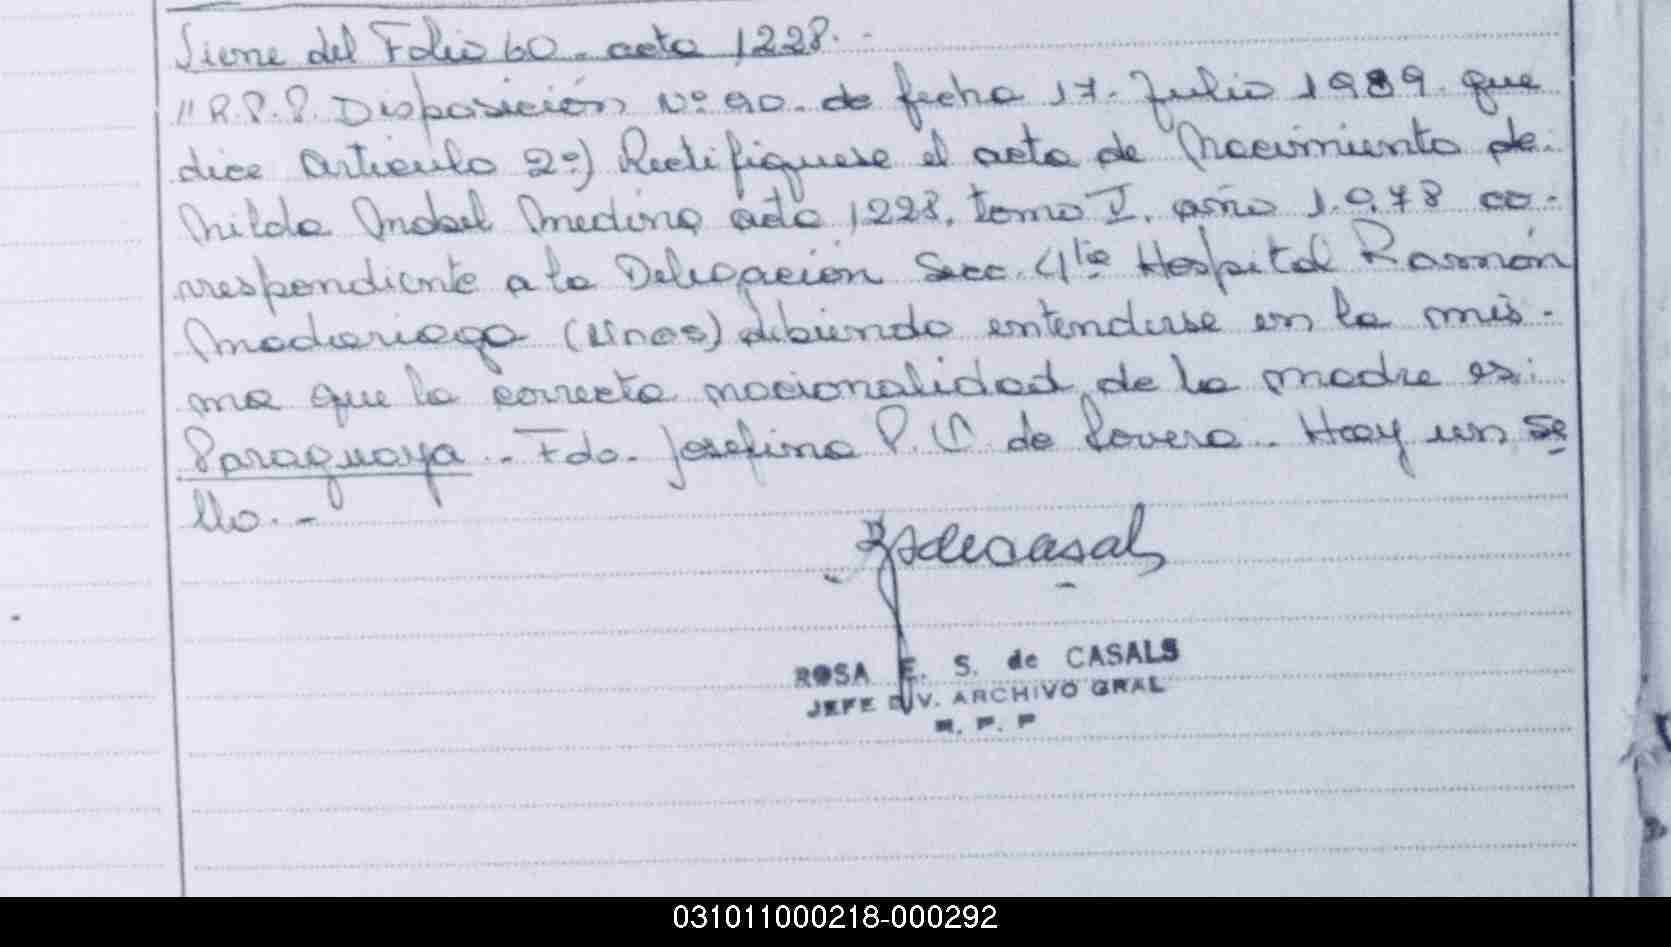 Viene del Folio 60. acta 1228.-
"R.P.P. Disposición Nº 90. de fecha 17. Julio 1989. que
dice Articulo 2º) Rectifiquese el acta de Nacimiento de:
Nilda Mabel Medina acta 1228. tomo I. año 1.978 co-
rrespondiente a la Delegación Secc. 4ta Hospital Ramón
Madariaga (Unas) debiendo entenderse en la mis-
ma que la correcta nacionalidad de la madre es:
Paraguaya.- Fdo. Josefina P. de Lovera.- Hay un se
llo.-
ROSA E. S. de CASALS
JEFE DIV. ARCHIVO GRAL
R. P. P
031011000218-000292